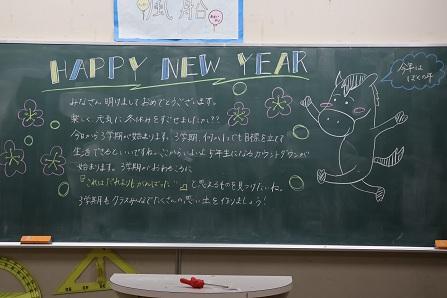 風船
HAPPY NEW YEAR
今年は
みなさん 明けましておめでとうございます。
楽しく、元気に冬休みをすごせましたか??
今日から3学期が始まります。3学期、何か1つでも目標を立てて
生活できるといいですね。ここからいよいよ5年生になるカウントダウンが
始まります。3学期がおわるころに
『これはだれよりもがんばった』と思えるものを見つけたいね。
3学期もクラスみんなでたくさんの思い出を作りましょう!